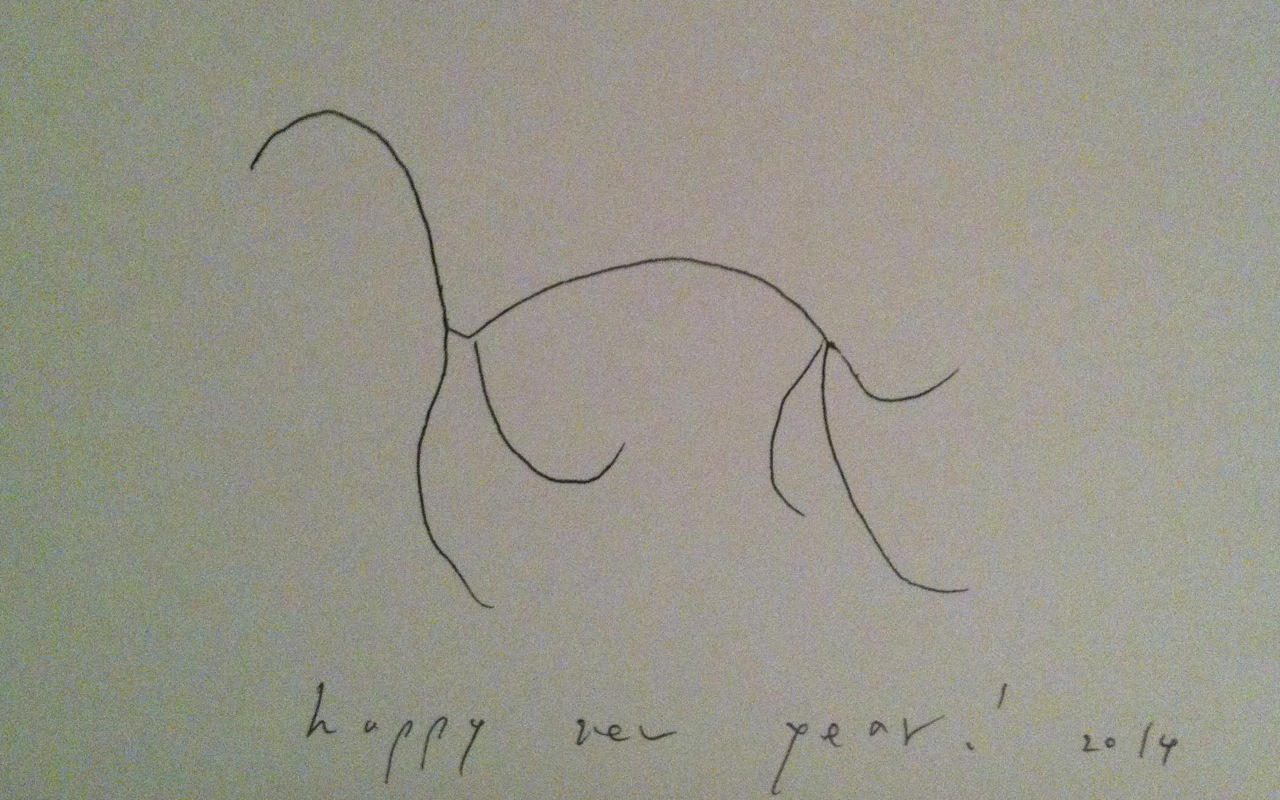 happy new year! 2014